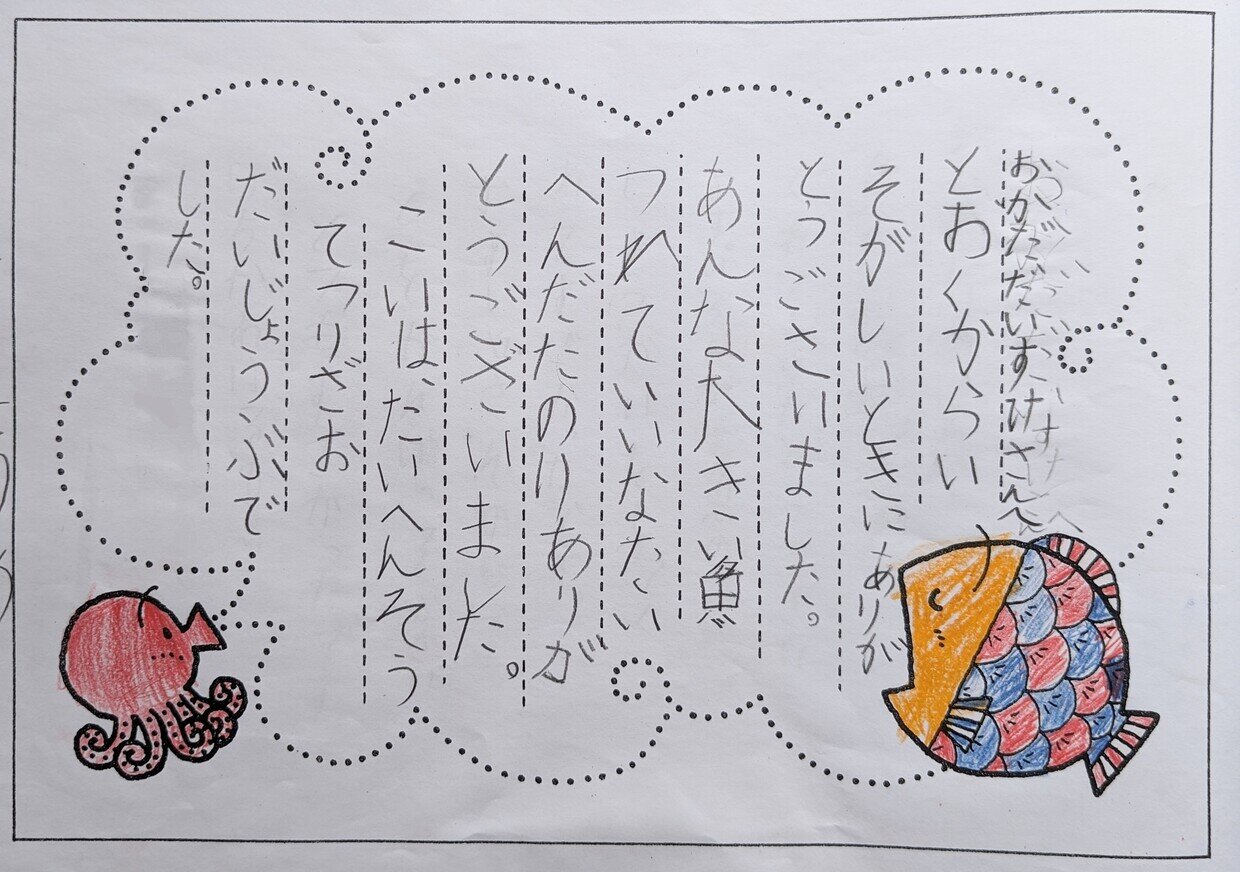 おかだだいすけさんへ
とおくからい
そがしいときにありが
とうごさいました。
あんな大きい魚
つれていいなたい
へんだたのりありが
とうございました。
こいは、たいへんそう
てつりざお
だいじょうぶで
した。